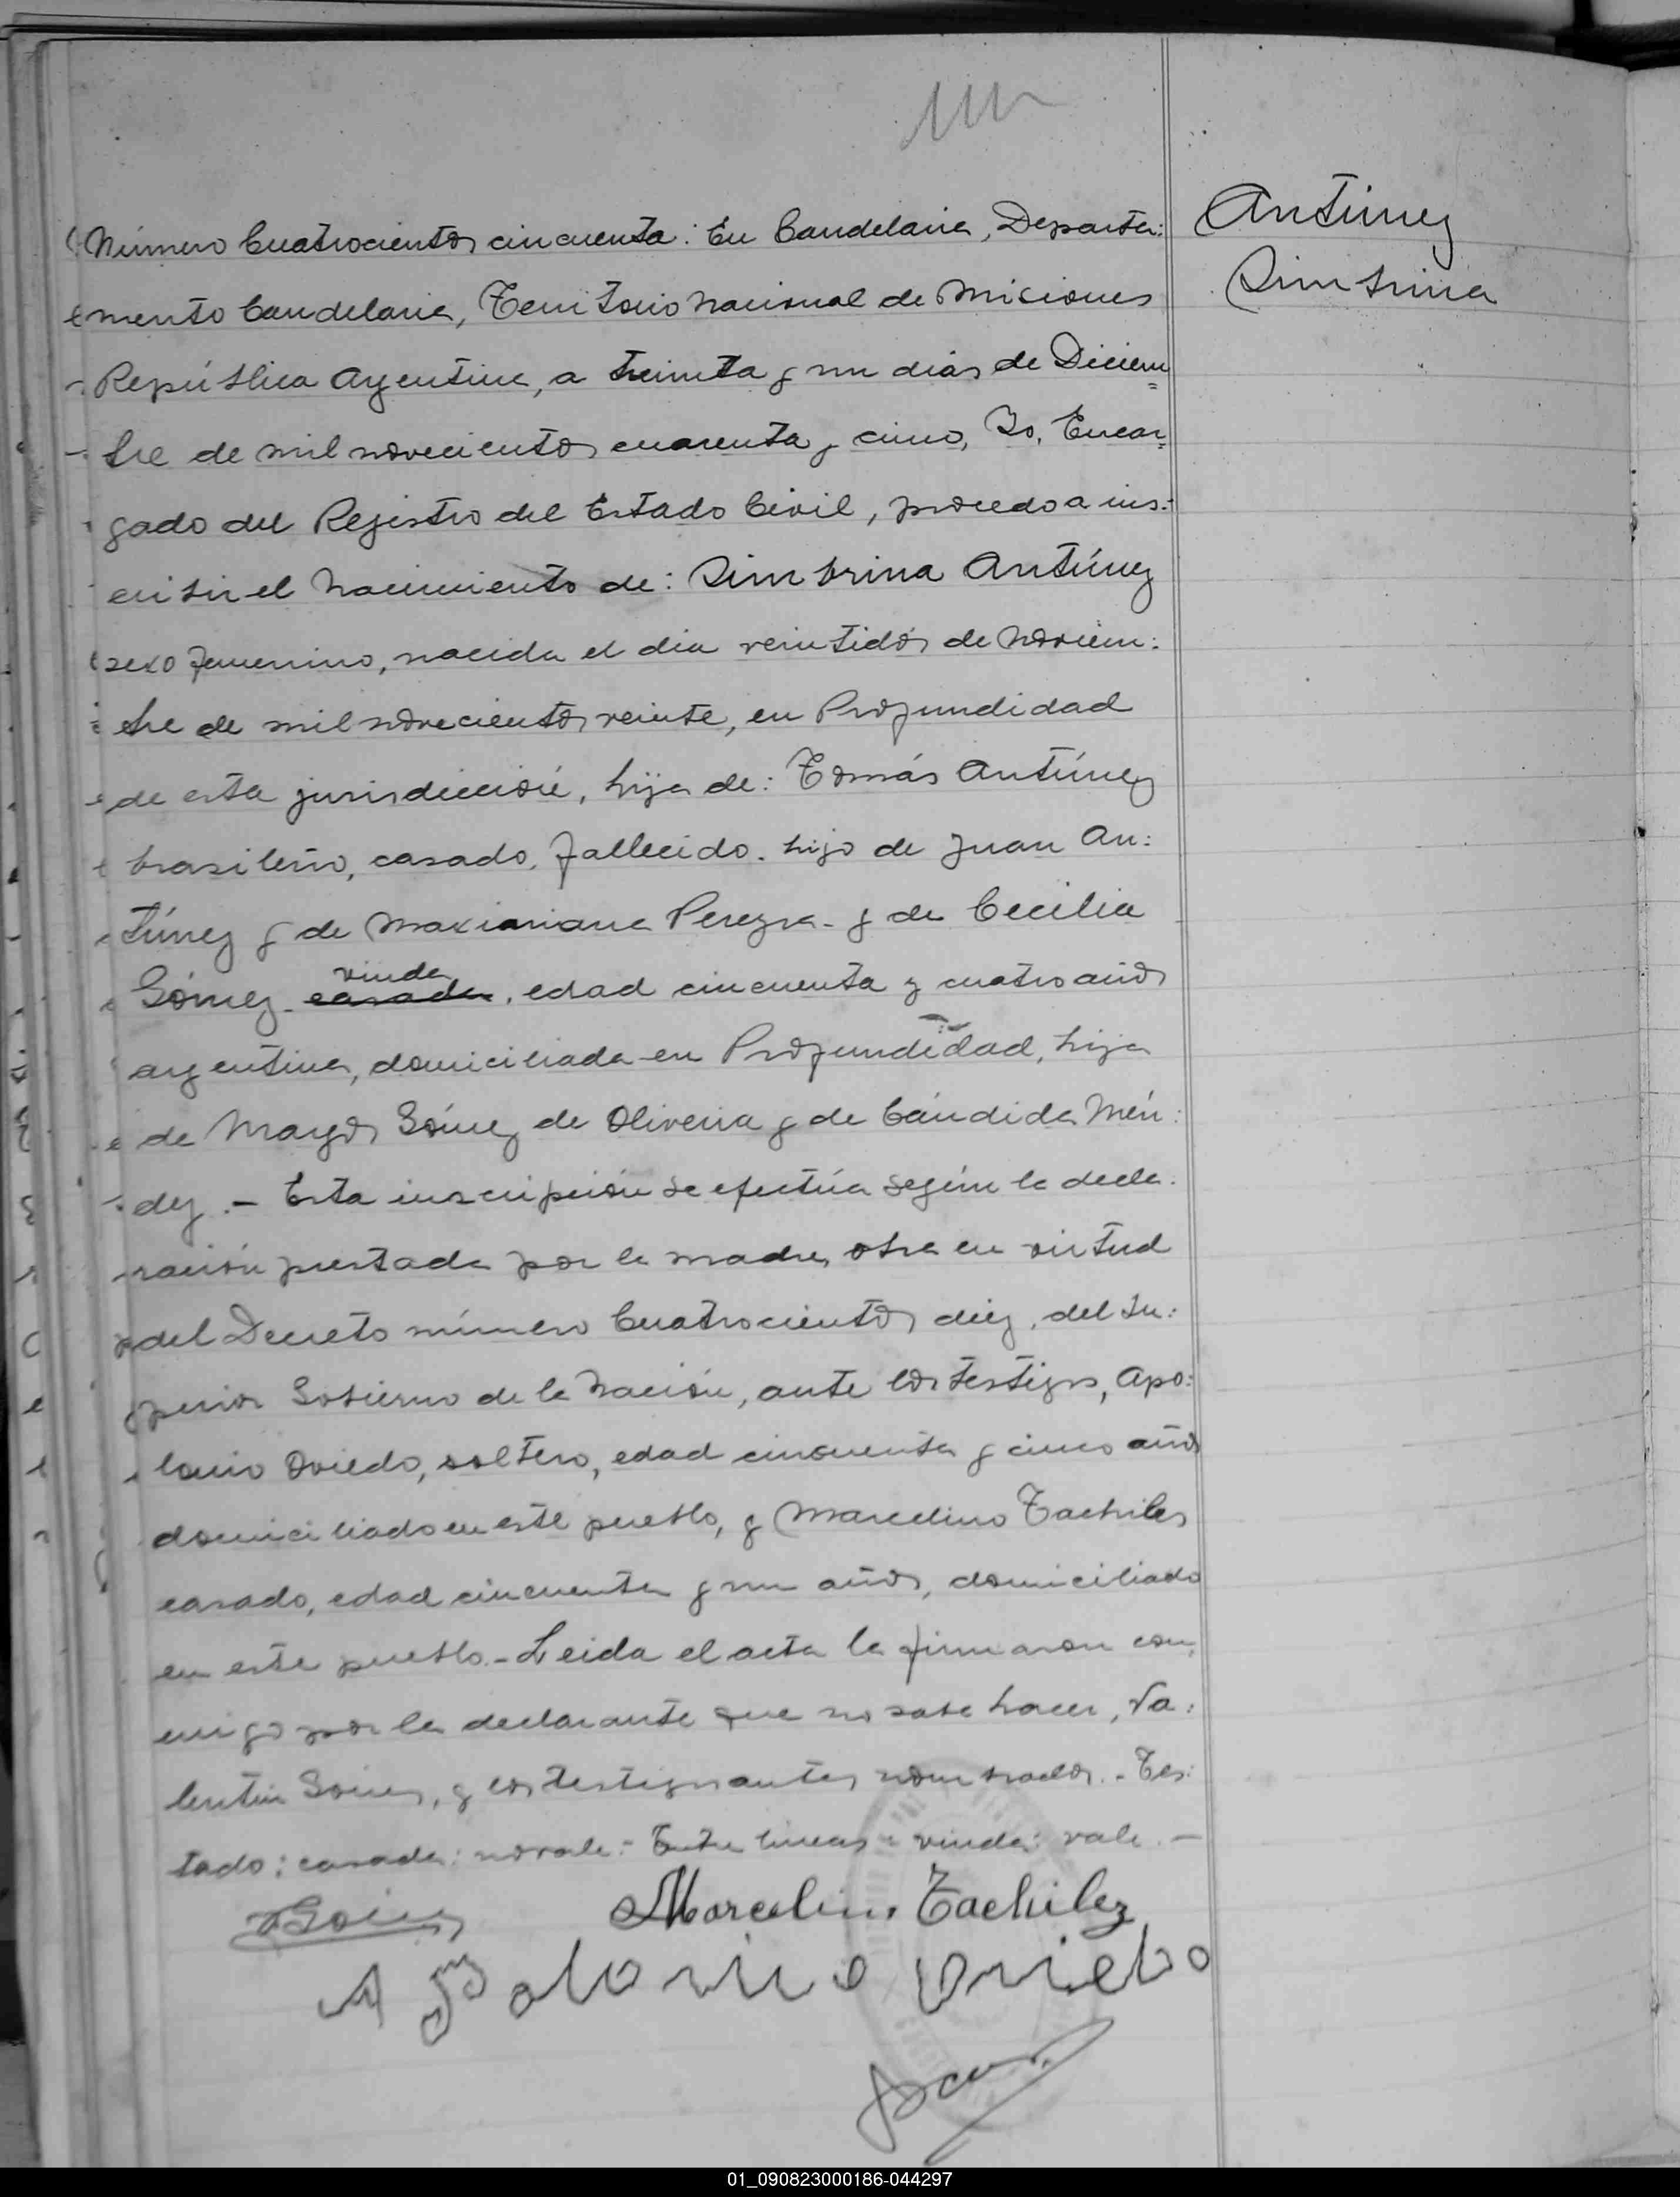 Antúnez
Simbrina
Número Cuatrocientos cincuenta: En Candelaria, Departa:
mento Candelaria, Territorio Nacional de Misiones
República Argentina, a treinta y un dias de Diciem=
bre de mil novecientos cuarenta y cinco, Yo, Encar=
gado del Registro del Estado Civil, procedo a ins:
cribir el Nacimiento de: Simbrina Antúnez
sexo femenino, nacida el dia veintidós de Noviem:
bre de mil novecientos veinte, en Profundidad
de esta jurisdicción, hija de: Tomás Antúnez
brasileño, casado, fallecido. hijo de Juan An:
túnez y de Maximiana Pereyra - y de Cecilia
Gómez - casada viuda, edad cincuenta y cuatro años
argentina, domiciliada en Profundidad, hija
de Gómez de Oliveira y de Cándida Mén:
dez. - Esta inscripción se efectúa según la decla:
ración prestada por la madre, obra en virtud
del Decreto número Cuatrocientos diez, del Su:
perior Gobierno de la Nación, ante los testigos, Apo:
lonio Oviedo, soltero, edad cincuenta y cinco años
domiciliado en este pueblo, y Marcelino Tachilez
casado, edad cincuenta y un años, domiciliado
en este pueblo - Leida el acta la firmaron con
migo por la declarante que no sabe hacer, Va:
lentin, y los testigos antes nombrados. - Tes:
tado: casada: no vale: - Entre lineas: viuda: vale. -
Marcelino Tachilez
Apolonio Oviedo
01_090823000186-044297